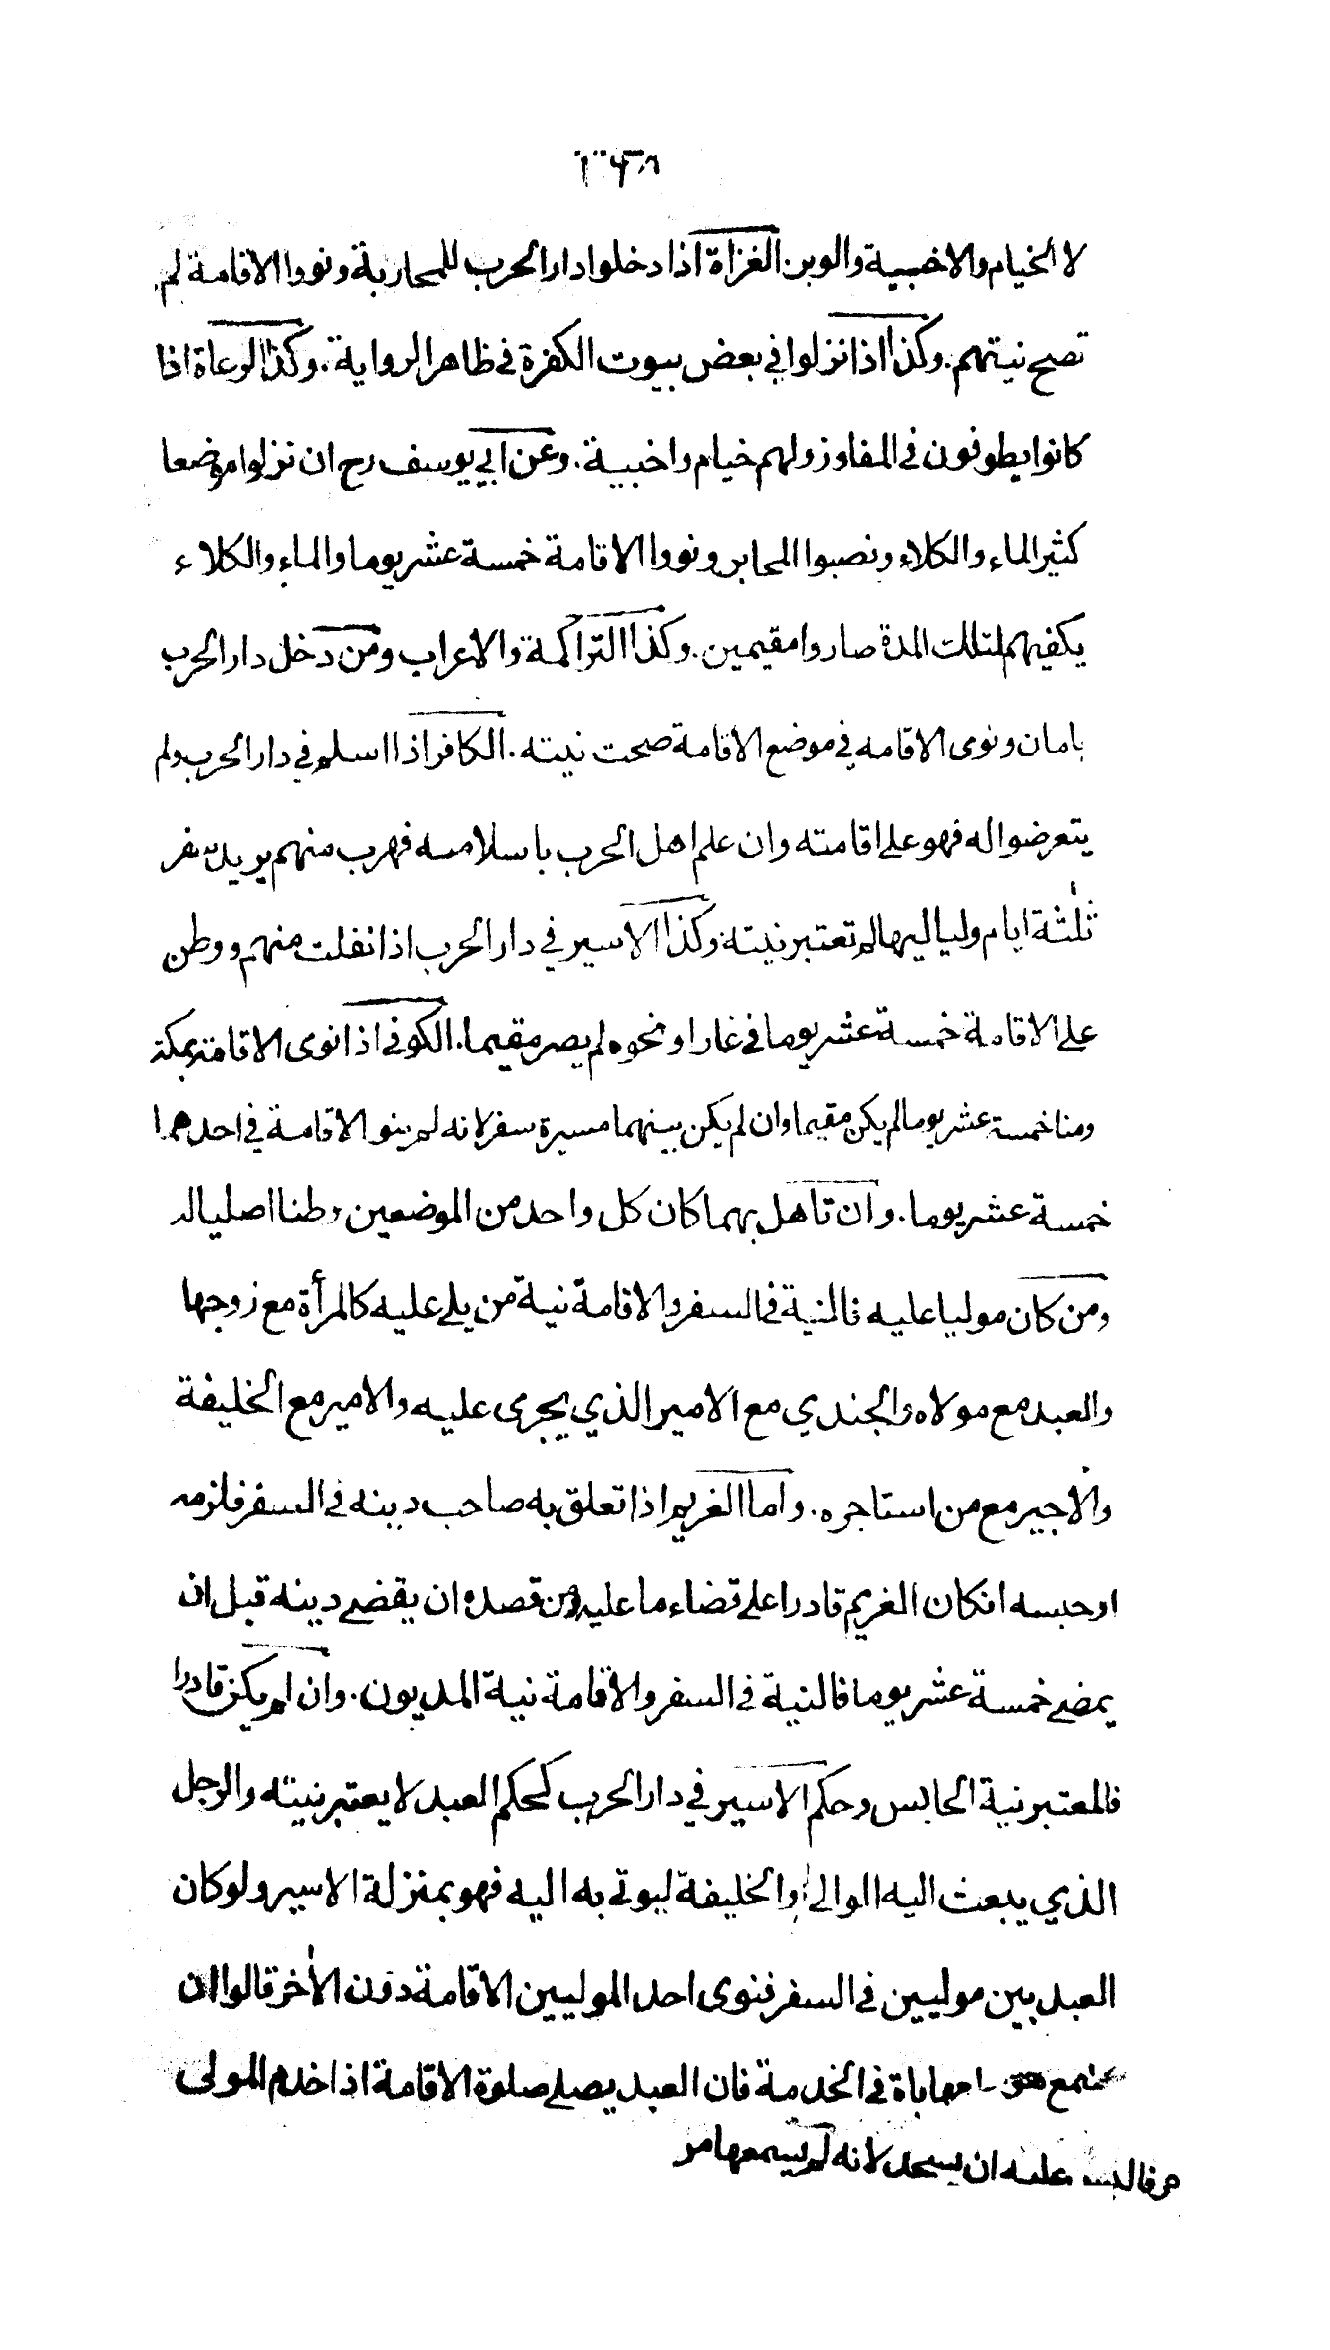 لا الخيام والاخبية والوبر. الغزاة اذا دخلوا دار الحرب للمحاربة ونووا الاقامة لم
تصح نيتهم. وكذا اذا نزلوا في بعض بيوت الكفرة في ظاهر الرواية. وكذا الرعاة اذا
كانوا يطوفون في المفاوز ولهم خيام واخبية. وعن ابي يوسف رح ان نزلوا موضعا
كثير الماء والكلاء ونصبوا المخابز ونووا الاقامة خمسة عشر يوما والماء والكلاء
يكفيهم لتلك المدة صاروا مقيمين. وكذا التراكمة والاعراب ومن دخل دار الحرب
بامان ونوى الاقامه في موضع الاقامة صحت نيته. الكافر اذا اسلم في دار الحرب ولم
يتعرضوا له فهو على اقامته وان علم اهل الحرب باسلامه فهرب منهم يريد سفر
ثلثة ايام ولياليها لم تعتبر نيته وكذا الاسير في دار الحرب اذا انفلت منهم ووطن
على الاقامة خمسة عشر يوما في غار او نحوه لم يصر مقيما. الكوفي اذا نوى الاقامة بمكة
ومنا خمسة عشر يوما لم يكن مقيما وان لم يكن بينهما مسيرة سفر لانه لم ينو الاقامة في احدهما
خمسة عشر يوما. وان تاهل بهما كان كل واحد من الموضعين وطنا اصليا له
ومن كان موليا عليه فالنية في السفر والاقامة نية من يلي عليه كالمرأة مع زوجها
والعبد مع مولاه والجندي مع الامير الذي يجرى عليه والامير مع الخليفة
والاجير مع من استاجره. واما الغريم اذا تعلق به صاحب دينه في السفر فلزمه
او حبسه انكان الغريم قادرا على قضاء ما عليه ومن قصده ان يقضي دينه قبل ان
يمضي خمسة عشر يوما فالنية في السفر والاقامة نية المديون. وان لم يكن قادرا
فالمعتبر نية الحابس وحكم الاسير في دار الحرب كحكم العبد لا يعتبر نيته والرجل
الذي يبعث اليه الوالي او الخليفة ليوتى به اليه فهو بمنزلة الاسير ولو كان
العبد بين موليين في السفر فنوى احد الموليين الاقامة دون الاخر قالوا ان
مهاباة في الخدمة فان العبد يصلي صلوة الاقامة اذا خدم المولى
عليه ان يسجد لانه لم يسمعها